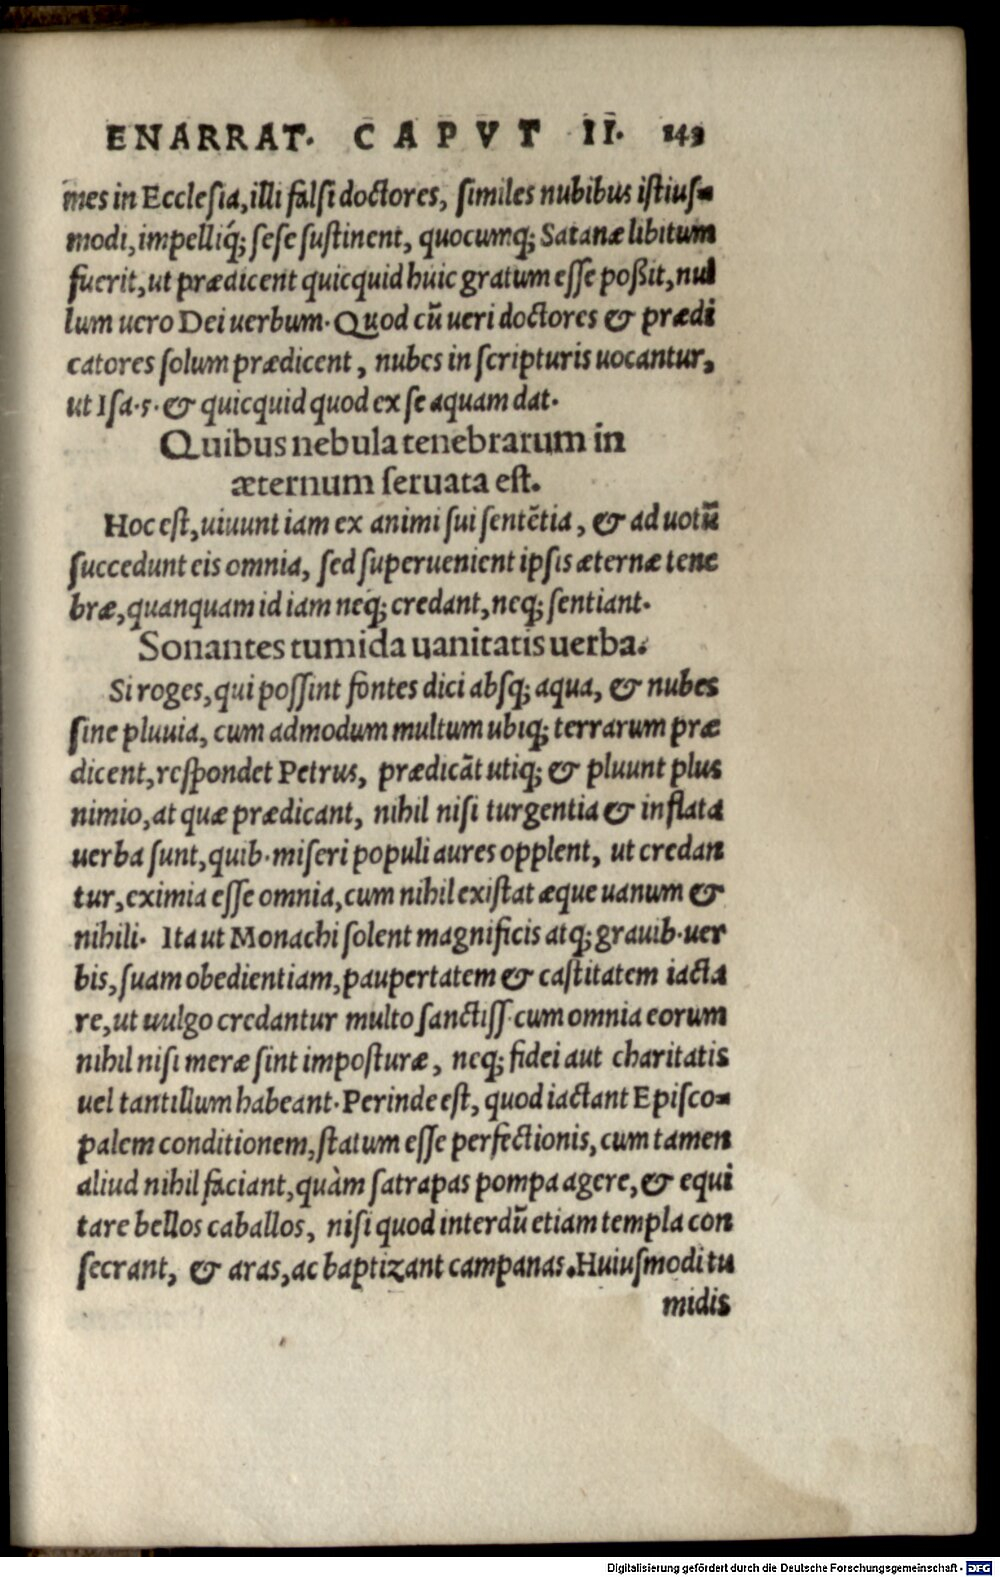 ENARRAT. CAPVT II. 143
mes in Ecclesia, illi falsi doctores, similes nubibus istius-
modi, impelliq́; sese sustinent, quocumq; Satanæ libitum
fuerit, ut prædicent quicquid huic gratum esse poßit, nul
lum uero Dei uerbum. Quod cũ ueri doctores & prædi
catores solum prædicent, nubes in scripturis uocantur,
ut Isa.5. & quicquid quod ex se aquam dat.
Quibus nebula tenebrarum in
æternum seruata est.
Hoc est, uiuunt iam ex animi sui sentẽtia, & ad uotũ
succedunt eis omnia, sed superuenient ipsis æternæ tene
bræ, quanquam id iam neq; credant, neq; sentiant.
Sonantes tumida uanitatis uerba.
Si roges, qui possint fontes dici absq; aqua, & nubes
sine pluuia, cum admodum multum ubiq; terrarum præ
dicent, respondet Petrus, prædicãt utiq; & pluunt plus
nimio, at quæ prædicant, nihil nisi turgentia & inflata
uerba sunt, quib. miseri populi aures opplent, ut credan
tur, eximia esse omnia, cum nihil existat æque uanum &
nihili. Ita ut Monachi solent magnificis atq; grauib. uer
bis, suam obedientiam, paupertatem & castitatem iacta
re, ut uulgo credantur multo sanctiss. cum omnia eorum
nihil nisi meræ sint imposturæ, neq; fidei aut charitatis
uel tantillum habeant. Perinde est, quod iactant Episco-
palem conditionem, statum esse perfectionis, cum tamen
aliud nihil faciant, quàm satrapas pompa agere, & equi
tare bellos caballos, nisi quod interdũ etiam templa con
secrant, & aras, ac baptizant campanas. Huiusmodi tu
midis
Digitalisierung gefördert durch die Deutsche Forschungsgemeinschaft - DFG